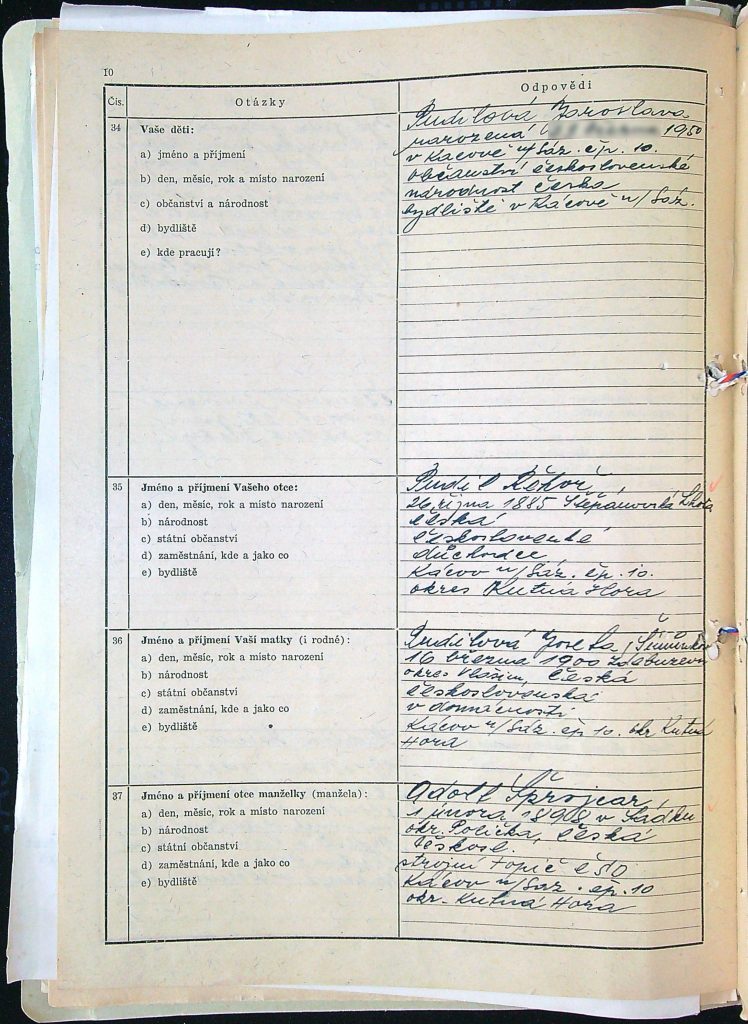 10
Čís.
Otázky
Odpovědi
34
Vaše děti:
a) jméno a příjmení
b) den, měsíc, rok a místo narození
c) občanství a národnost
d) bydliště
e) kde pracují?
Pudilová Jaroslava
narozená 1950
v Kácově n/Sáz. čp. 10.
občanství československé
národnost česká
bydliště v Kácově n/Sáz.
35
Jméno a příjmení Vašeho otce:
a) den, měsíc, rok a místo narození
b) národnost
c) státní občanství
d) zaměstnání, kde a jako co
e) bydliště
Pudil Řehoř,
26. října 1885 Štěpánovská Lhota
česká
československé
důchodce
Kácov n/Sáz. čp. 10.
okres Kutná Hora
36
Jméno a příjmení Vaší matky (i rodné):
a) den, měsíc, rok a místo narození
b) národnost
c) státní občanství
d) zaměstnání, kde a jako co
e) bydliště
Pudilová Josefa,
16 března 1900
okres Vlašim, česká
československá
v domácnosti
Kácov n/Sáz. čp 10. okr Kutná
Hora
37
Jméno a příjmení otce manželky (manžela):
a) den, měsíc, rok a místo narození
b) národnost
c) státní občanství
d) zaměstnání, kde a jako co
e) bydliště
Adolf
1 února 1898 v Sádku
okr. Polička, česká
českosl.
strojní topič ČSD
Kácov n/Sáz. čp. 10
okr. Kutná Hora